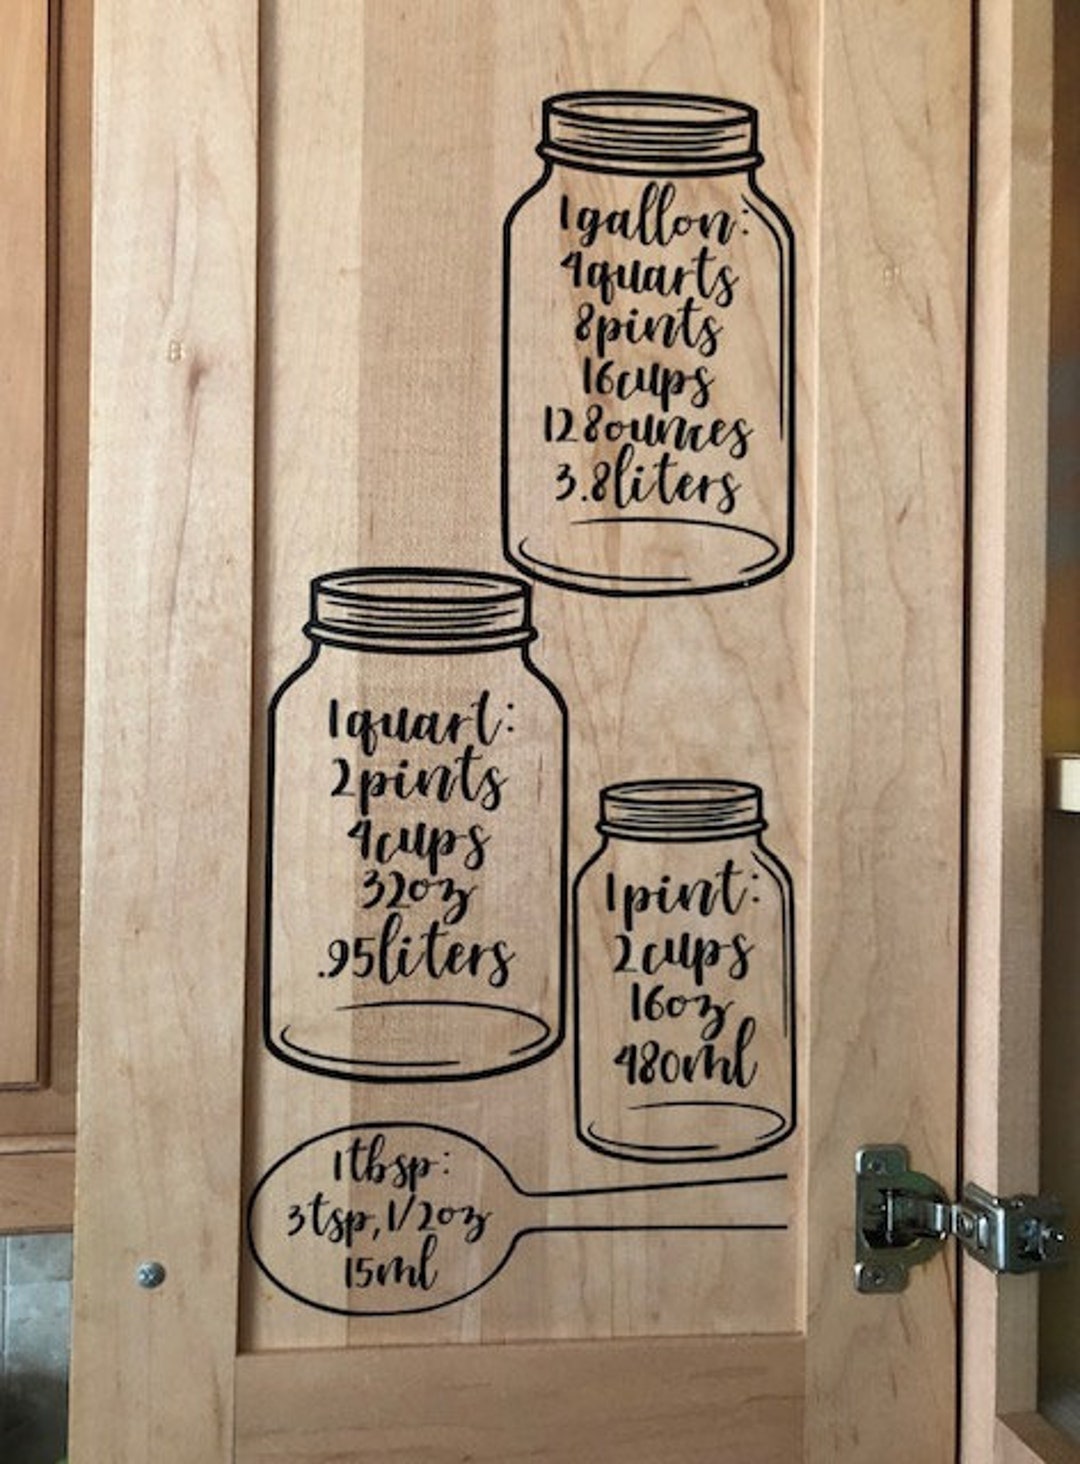 1 gallon:
4 quarts
8 pints
16 cups
128 ounces
3.8 liters
1 quart:
2 pints
4 cups
32 oz
.95 liters
1 pint:
2 cups
16 oz
480 ml
1 tbsp:
3 tsp, 1/2 oz
15 ml